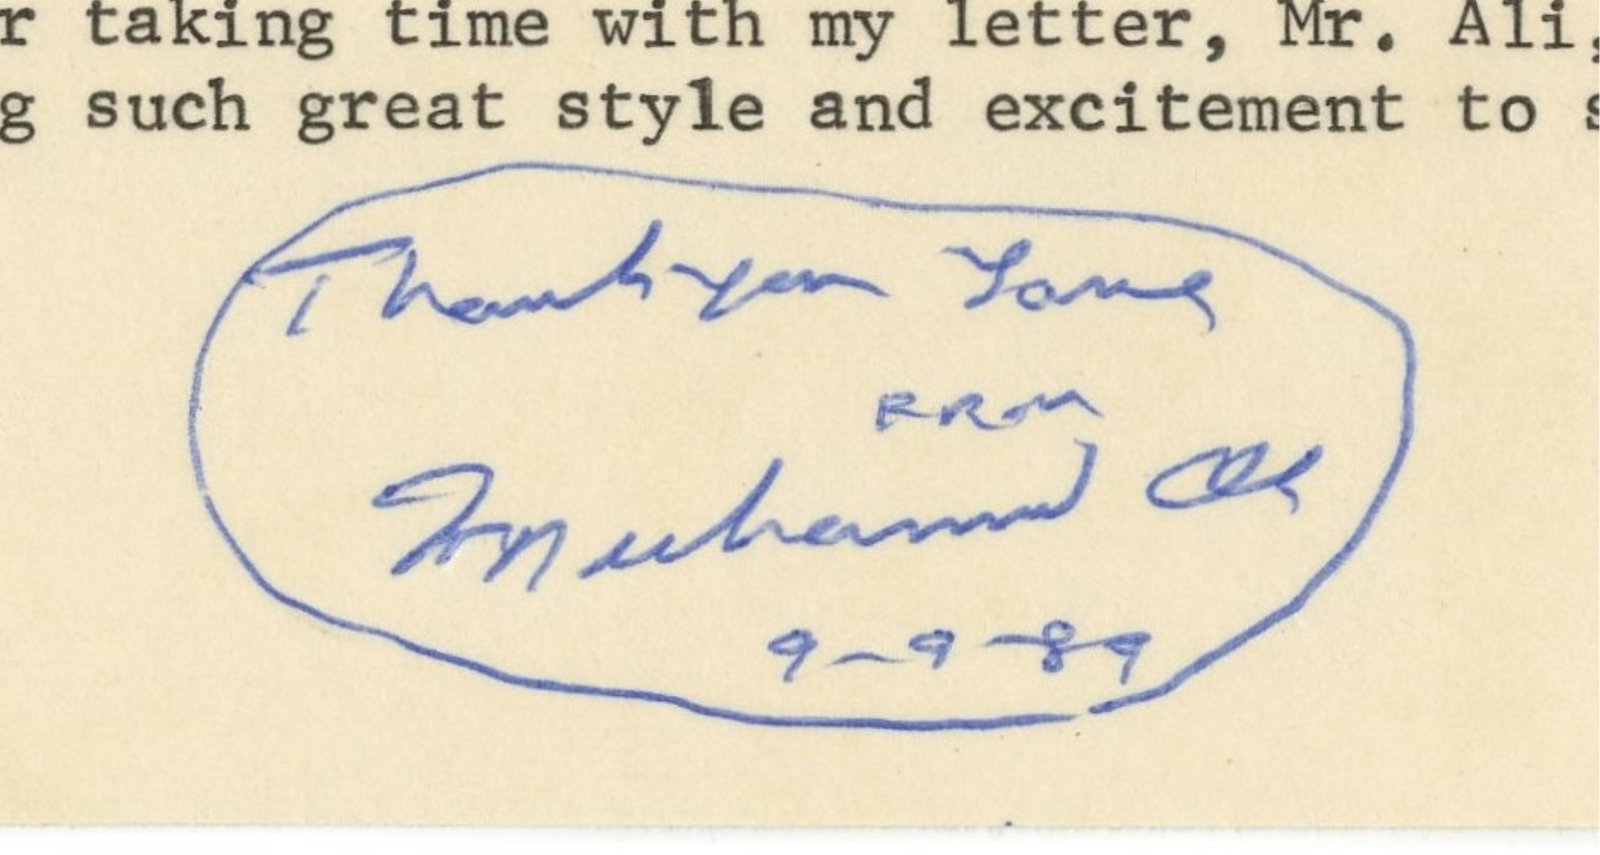 r taking time with my letter, Mr. Ali,
g such great style and excitement to s
Thank you
FROM
Muhammad Ali
9-9-89